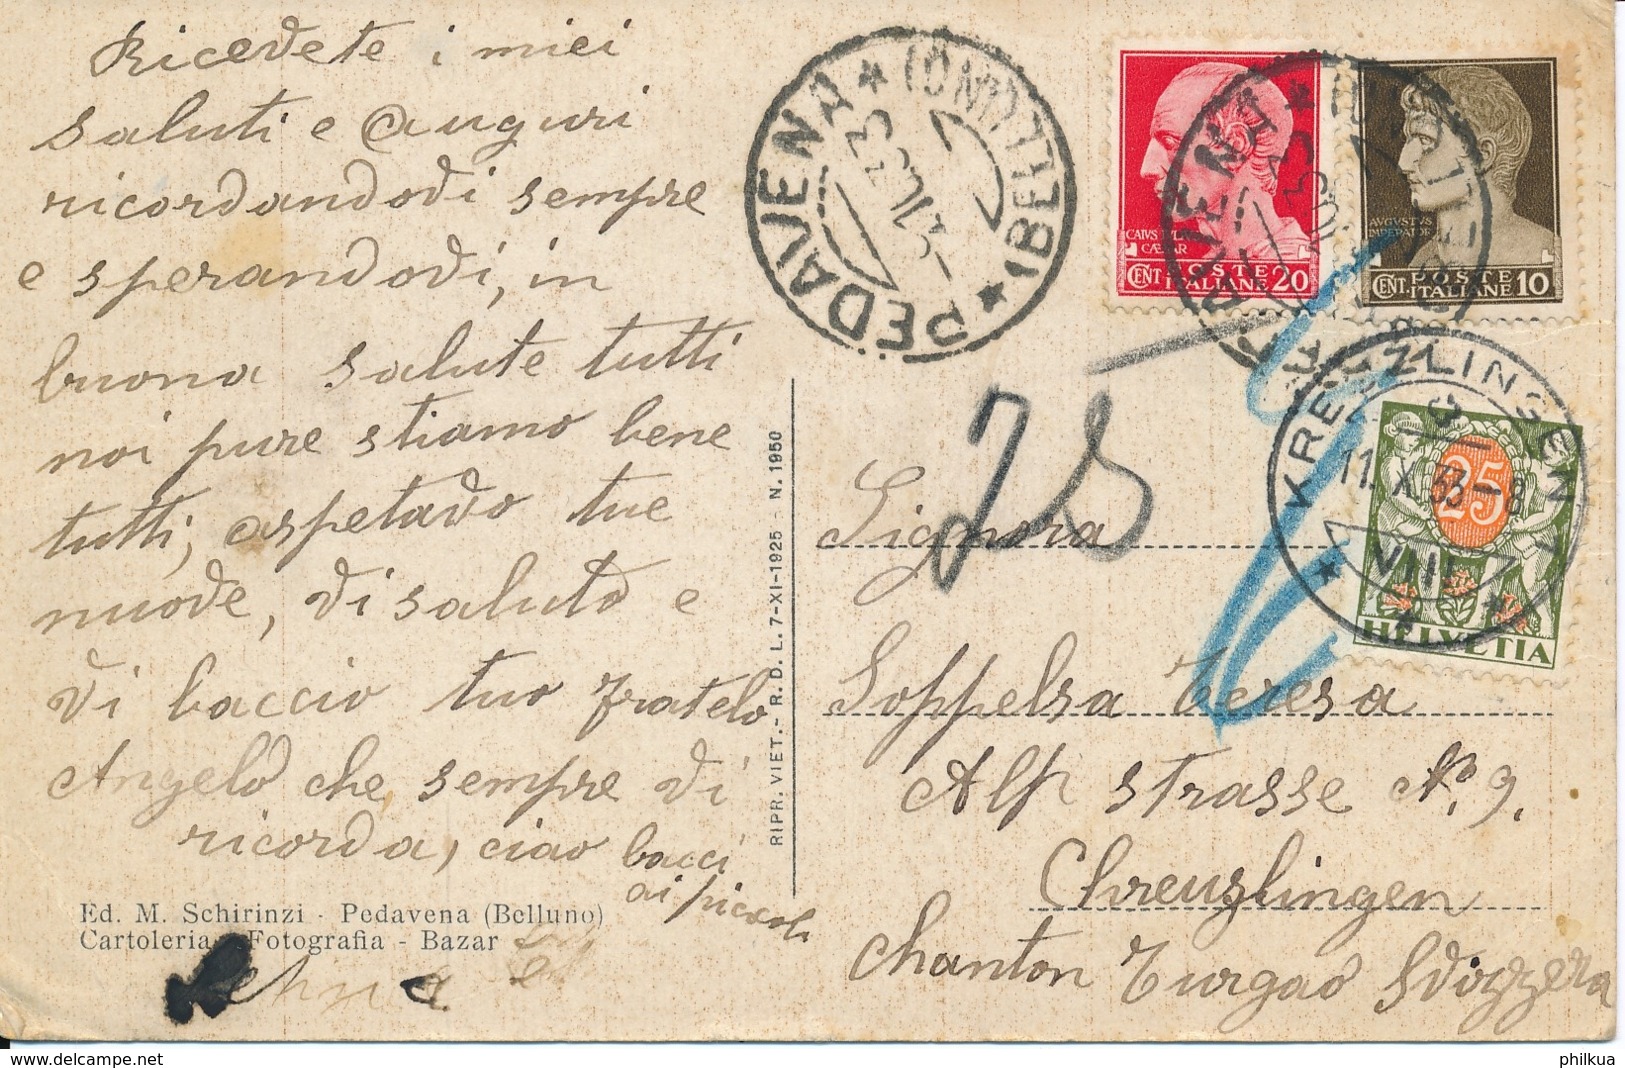 Ricevete i miei
saluti e auguri
ricordandovi sempre
e sperandovi, in
buona salute tutti
noi pure stiamo bene
tutti, aspetavo tue
nuove, vi saluto e
vi baccio tuo fratelo
Angelo che sempre vi
ricorda, ciao bacci
ai piccoli
Ed. M. Schirinzi - Pedavena (Belluno)
Cartoleria - Fotografia - Bazar
RIPR. VIET. - R. D. L. 7-XI-1925 - N. 1950
PEDAVENA * (BELLUNO) *
CAIVS IVL
CÆSAR
CENT. POSTE ITALIANE 20
AVGVSTVS
IMPERATOR
CENT. POSTE ITALIANE 10
KREUZLINGEN
11. X. 33-8
VIII
25
HELVETIA
25
Signora
Soppelsa Teresa
Alp strasse No. 9.
Chreuzlingen
Chanton Turgao Svizzera
https://www.delcampe.net
philkua